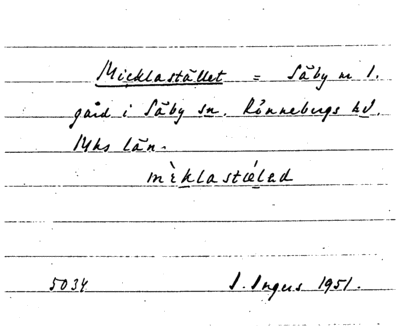 Micklastället = Säby nr 1.
gård i Säby sn. Rönnebergs hd.
Mhs län.
mìklastæ̀led
5034 I. Ingers 1951.